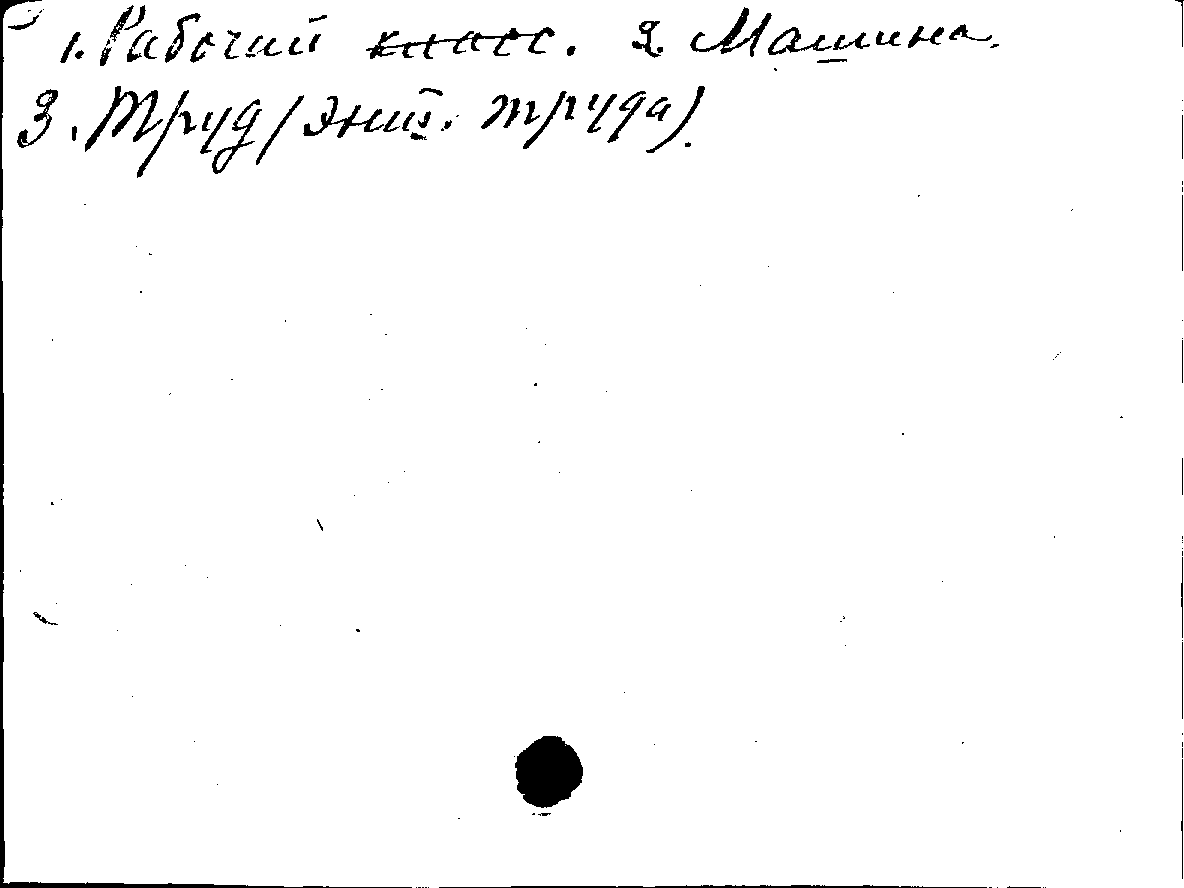 1. Рабочий класс. 2. Машина.
3. Труд (энт. труда).